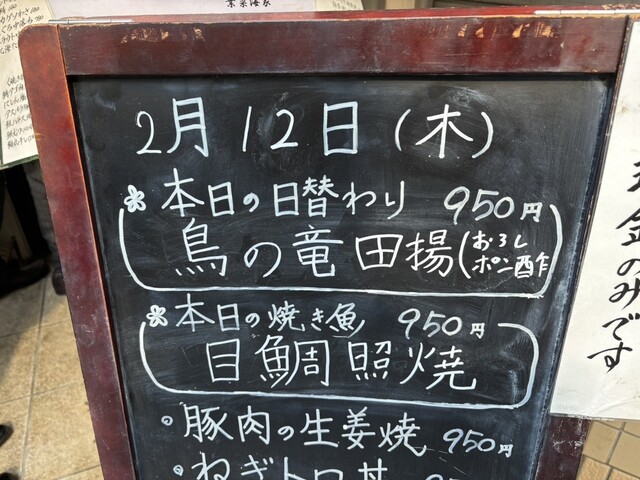 2月12日(木)
本日の日替わり 950円
鳥の竜田揚(おろしポン酢)
本日の焼き魚 950円
目鯛照焼
・豚肉の生姜焼 950円
・ねぎトロ丼
金のみです